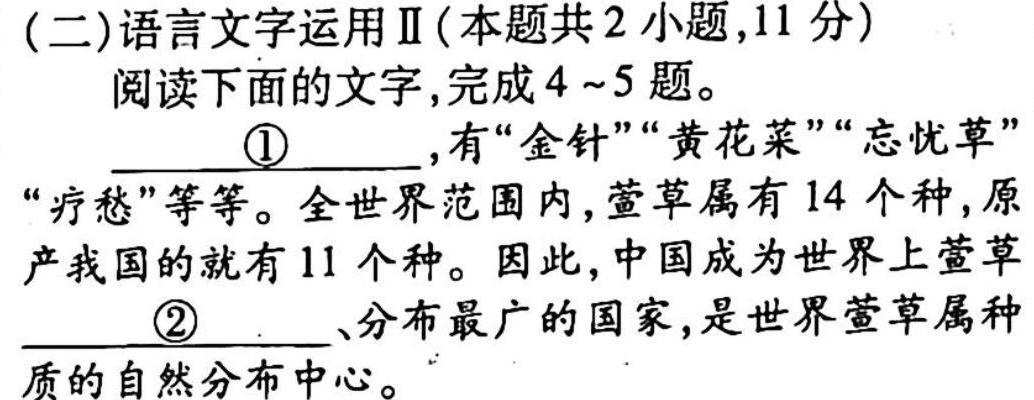 (二)语言文字运用Ⅱ(本题共2小题,11分)
阅读下面的文字,完成4~5题。
①,有“金针”“黄花菜”“忘忧草”
“疗愁”等等。全世界范围内,萱草属有14个种,原
产我国的就有11个种。因此,中国成为世界上萱草
②、分布最广的国家,是世界萱草属种
质的自然分布中心。